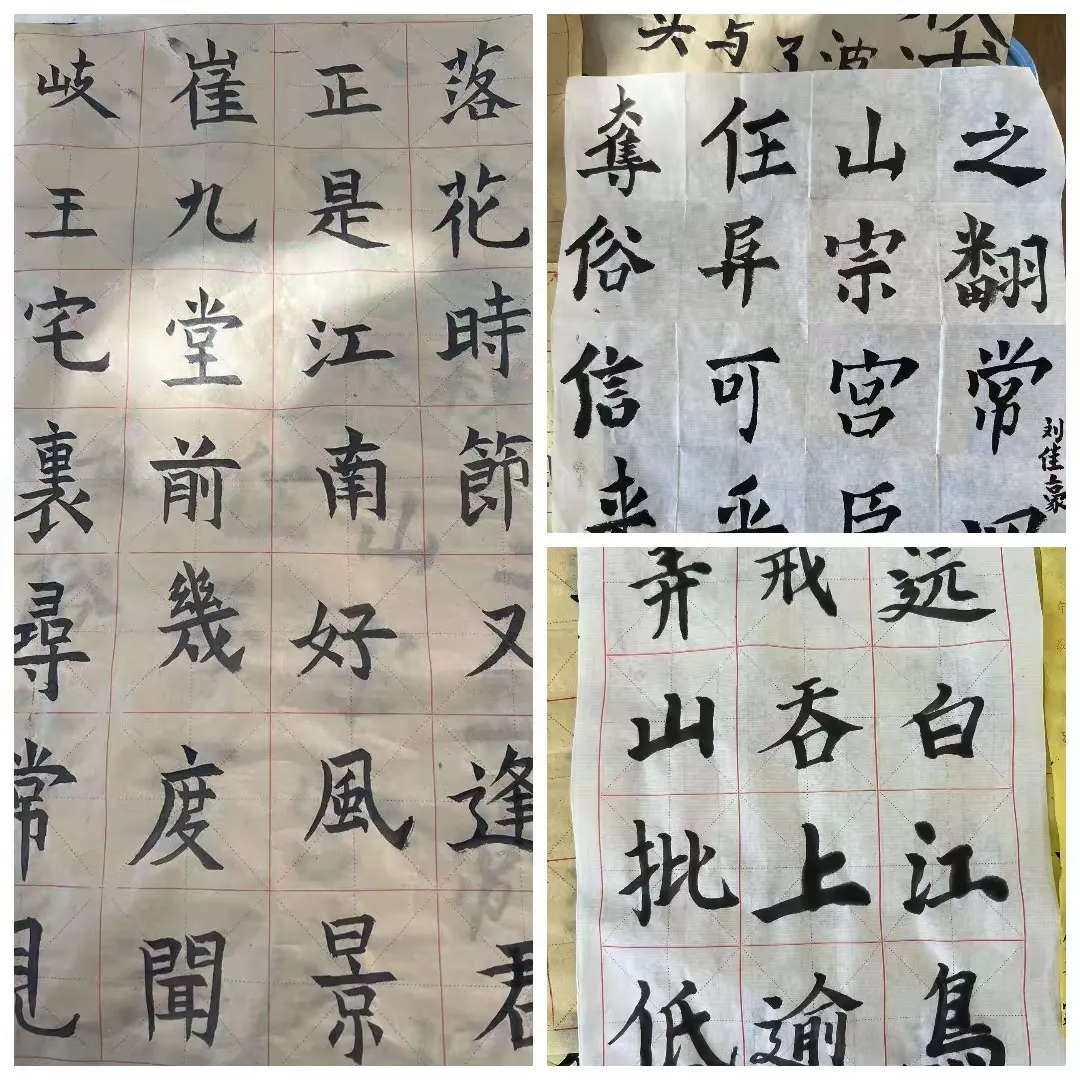 岐王宅裏尋常見
崔九堂前幾度聞
正是江南好風景
落花時節又逢君
头与了波
奪俗信来
任异可乎
山宗宫臣
之翻常
刘佳豪
弄山批低
戒吞上逾
远白江鳥